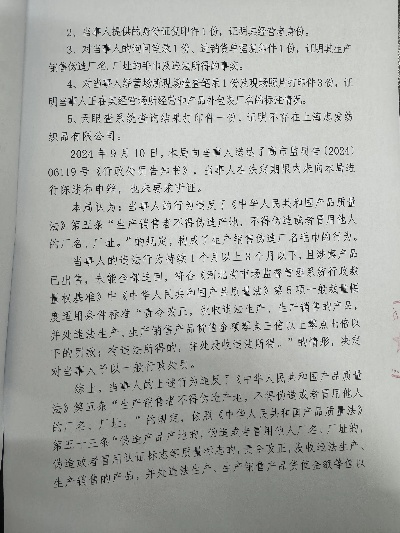 2、当事人提供的身份证复印件1份，证明其经营者身份。
3、对当事人的询问笔录1份、证明其生产
销售伪造厂名、厂址的
4、对当事人经营场所现场检查笔录1份及现场照片打印件3份，证
明当事人
5、天眼查系统查询结果打印件一份，证明不存在上海
织品有限公司。
2024年9月10日，本局向当事人送达了 市监罚告〔2024〕
0619号《行政处罚告知书》，当事人在法定期限内未向本局进
行陈述和申辩，也未要求听证。
本局认为：当事人的行为违反了《中华人民共和国产品质量
法》第五条“生产销售者不得伪造产地，不得伪造或者冒用他人
的厂名、厂址。”的规定，构成了生产销售伪造厂名
当事人的违法行为持续1个月以上3个月以下，且涉案产品
已售出，未能全部追回，符合《 市场监督管理系统行政处罚裁
量权基准》中《中华人民共和国产品质量法》第 项一般裁量幅
度适用条件标准“责令改正，没收违法生产、生产销售的产品，
并处违法生产、生产销售产品货值金额
下的罚款；有违法所得的，并处没收违法所得。”的情形，决定
对当事人予以一般行政处罚。
综上，当事人的上述行为违反了《中华人民共和国产品质量
法》第五条“生产销售者不得伪造产地，不得伪造或者冒用他人
的厂名、厂址。”的规定，依照《中华人民共和国产品质量法》
第五十三条“伪造产品产地的，伪造或者冒用他人厂名、厂址的，
伪造或者冒用认证标志等质量标志的，责令改正，没收违法生产、
生产销售的产品，并处违法生产、生产销售产品货值金额等值以